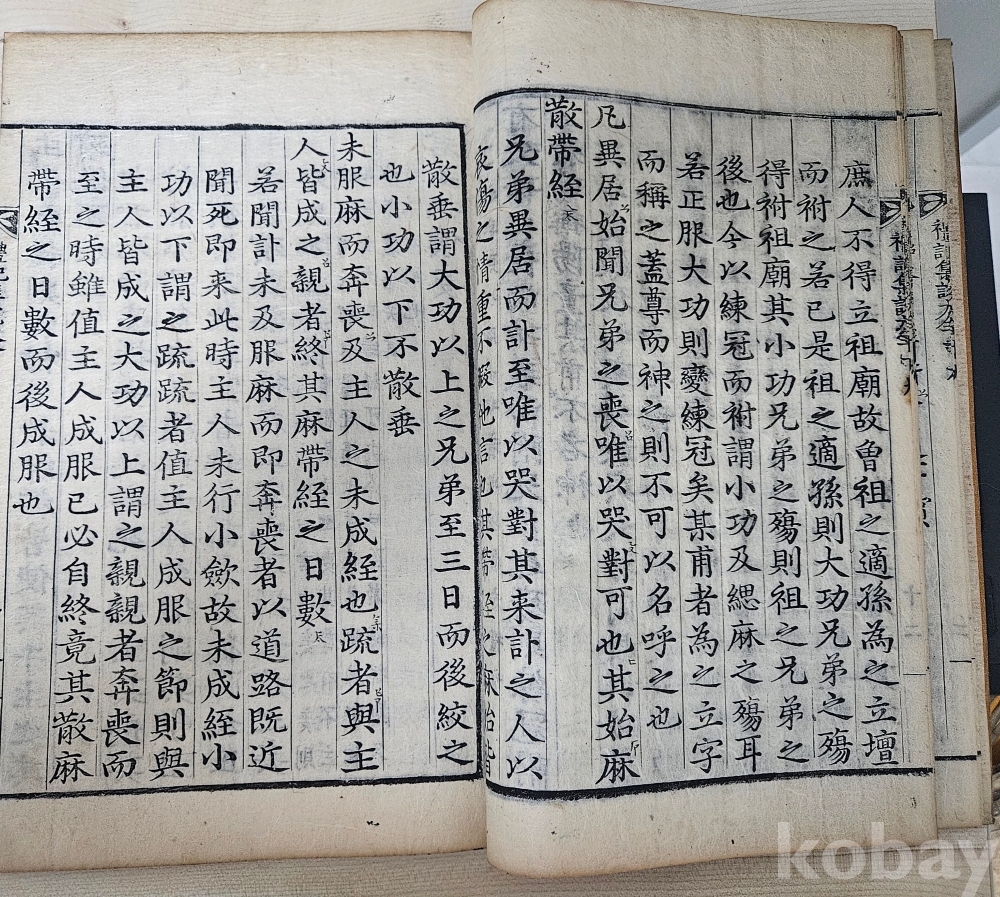 庶人不得立祖廟故曾祖之適孫為之立壇
而祔之若已是祖之適孫則大功兄弟之殤
得祔祖廟其小功兄弟之殤則祖之兄弟之
後也今以練冠而祔謂小功及緦麻之殤耳
若正服大功則變練冠矣某甫者為之立字
而稱之蓋尊而神之則不可以名呼之也
凡異居始聞兄弟之喪唯以哭對可也其始麻
散帶絰
兄弟異居而訃至唯以哭對其来訃之人以
哀傷之情重不暇他言也其帶絰之麻始皆
散垂謂大功以上之兄弟至三日而後絞之
也小功以下不散垂
未服麻而奔喪及主人之未成絰也疏者與主
人皆成之親者終其麻帶絰之日數
若聞訃未及服麻而即奔喪者以道路既近
聞死即来此時主人未行小斂故未成絰小
功以下謂之疏疏者值主人成服之節則與
主人皆成之大功以上謂之親親者奔喪而
至之時雖值主人成服已必自終竟其散麻
帶絰之日數而後成服也
kobay